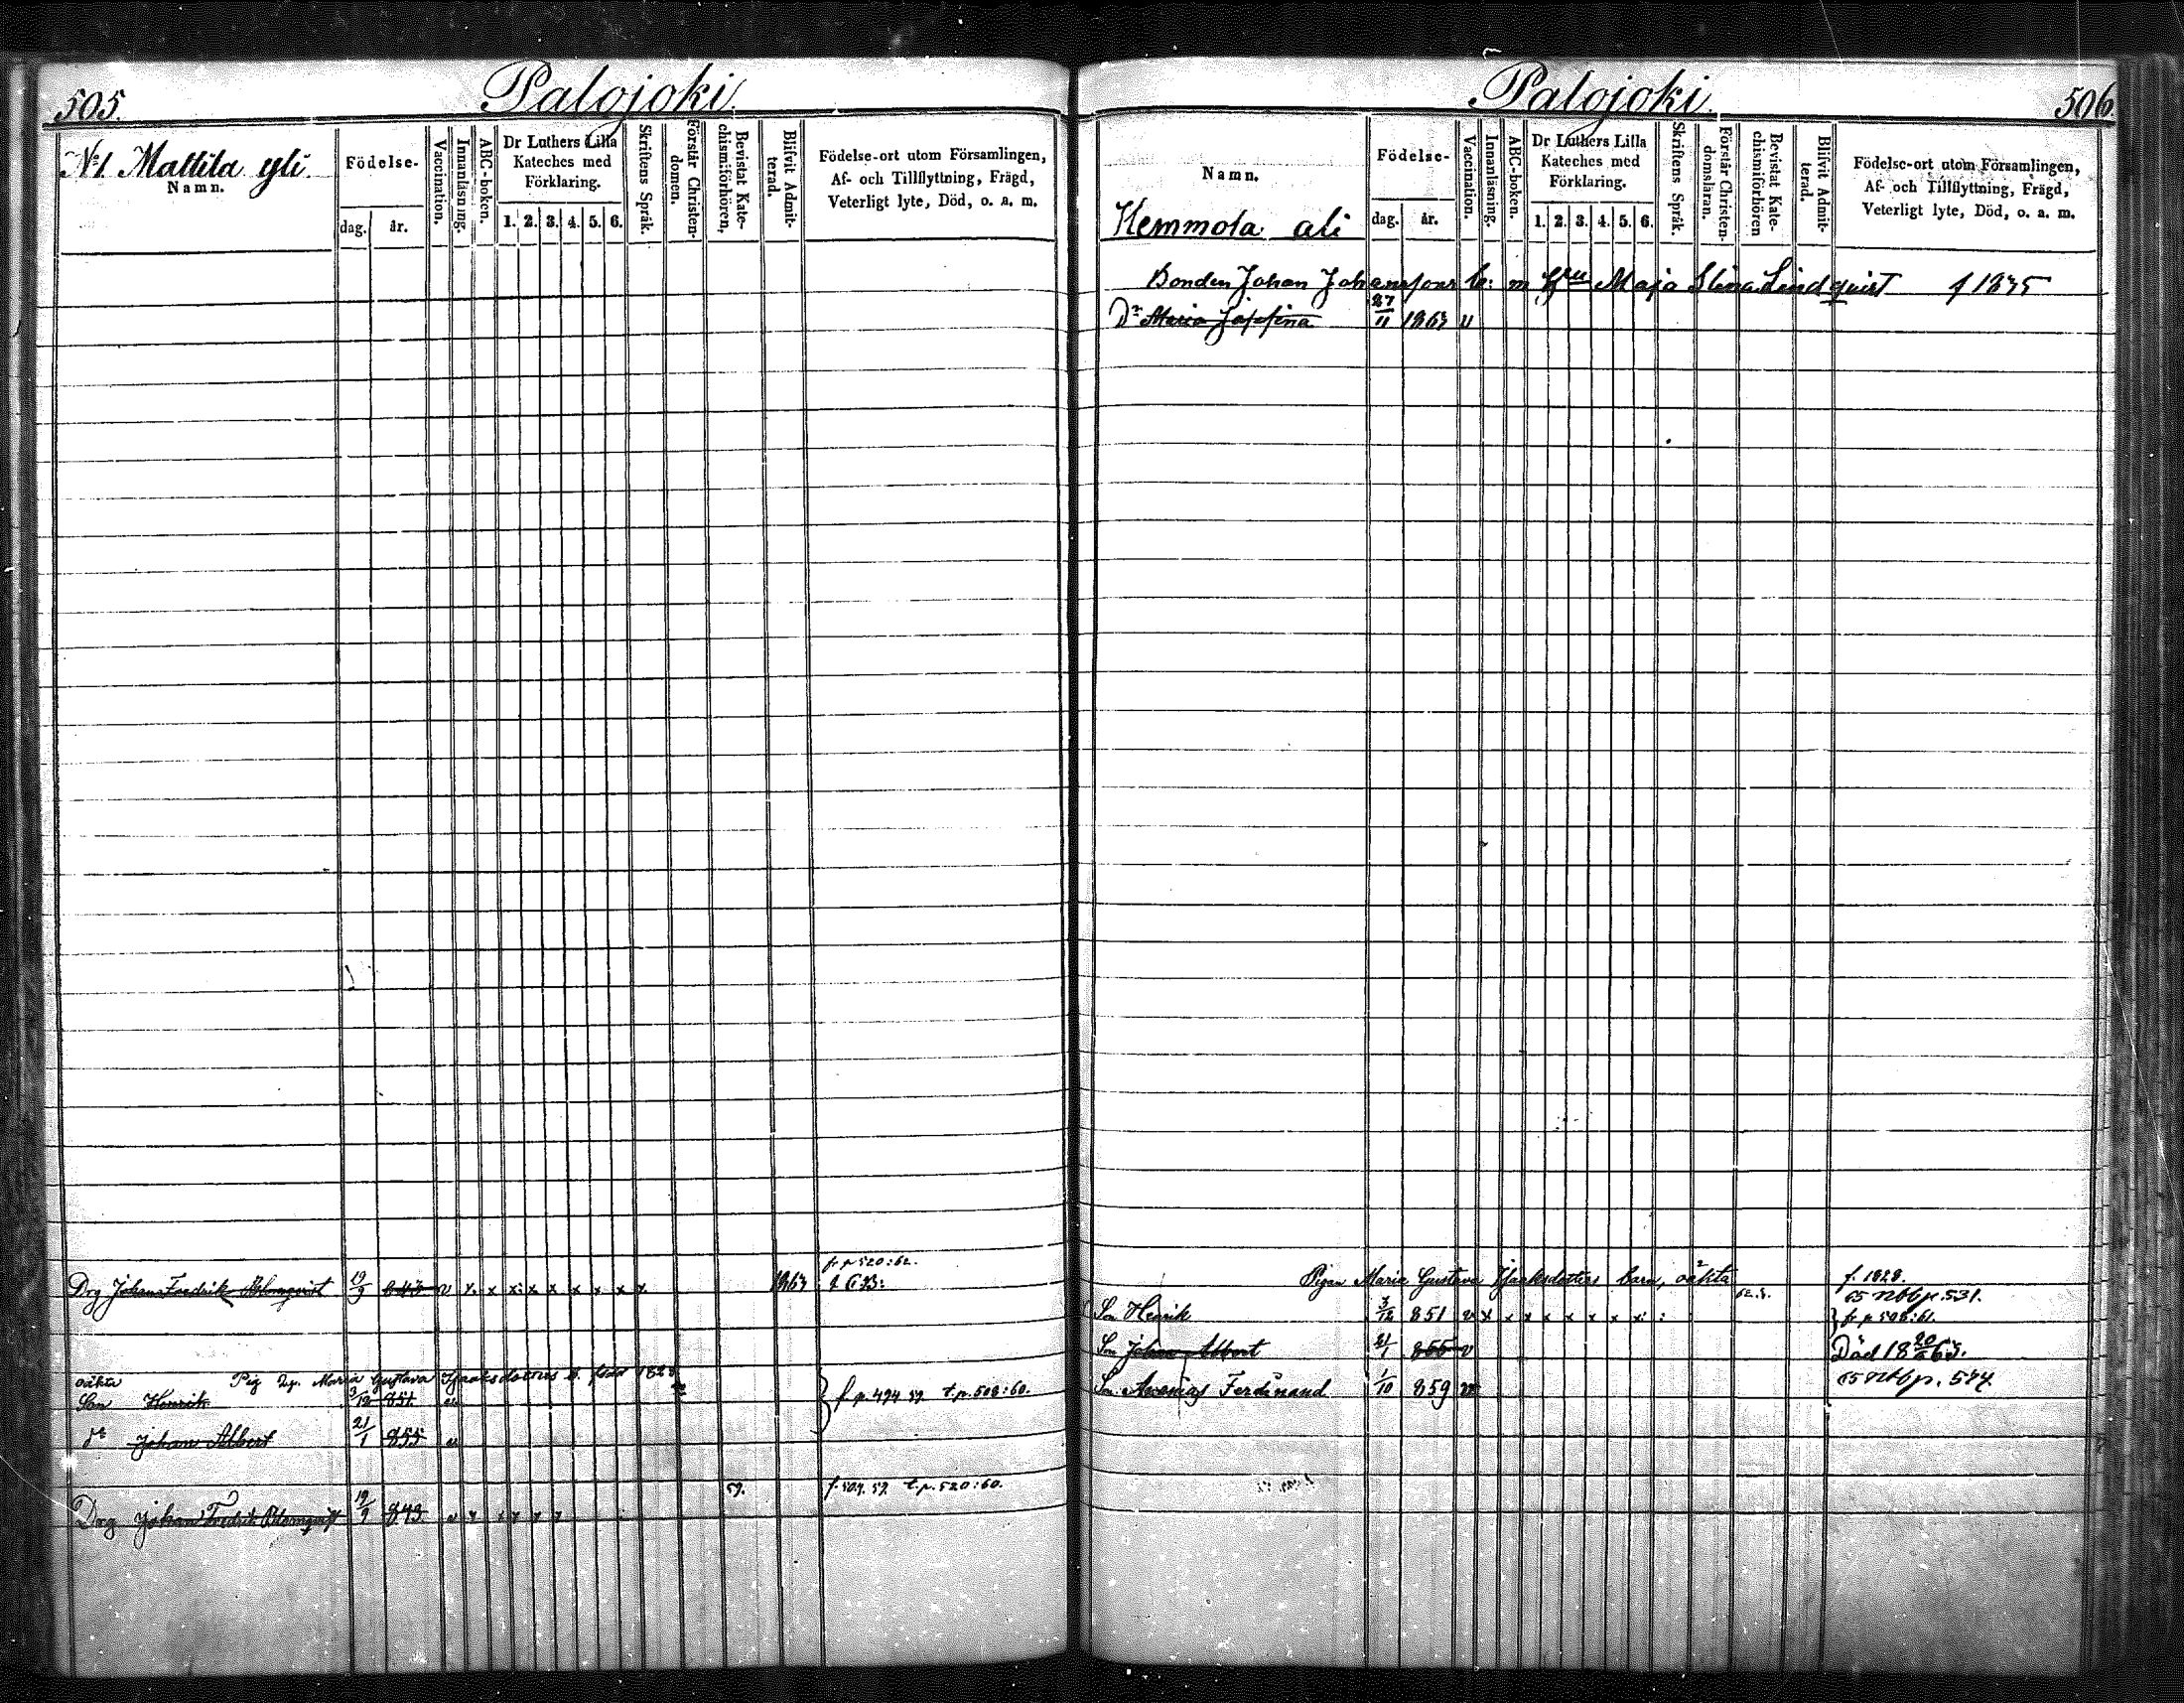 505.
Palojoki.
N:1. Mattila yli.
Namn.
Födelse-
dag. år.
Vaccination.
Innanläsning.
ABC-boken.
Dr Luthers Lilla
Kateches med
Förklaring.
1. 2. 3. 4. 5. 6.
Skriftens Språk.
Förstår Christen-
domen.
Bevistat Kate-
chismiförhören,
Blifvit Admit-
terad.
Födelse-ort utom Församlingen,
Af- och Tillflyttning, Frägd,
Veterligt lyte, Död, o. a. m.
fr p 520:62.
Drg Johan Fredrik Blomqvist 19/9 843 v x x x x x x x x x 1863
oäkta Pig Maria Gustava Isaaksdotters b. född 1828
Son Henrik 3/12 851 v } f p 494 59. t.p. 508:60.
do Johan Albert 21/1 855 v
59. f. 509. 59. t.p. 520:60.
Drg Johan Fredrik Blomqvist 19/9 843. v x x x x x
Palojoki.
506.
Namn.
Hemmola ali
Födelse-
dag. år.
Vaccination.
Innanläsning.
ABC-boken.
Dr Luthers Lilla
Kateches med
Förklaring.
1. 2. 3. 4. 5. 6.
Skriftens Språk.
Förstår Christen-
domsläran.
Bevistat Kate-
chismiförhören
Blifvit Admit-
terad.
Födelse-ort utom Församlingen,
Af- och Tillflyttning, Frägd,
Veterligt lyte, Död, o. a. m.
Bonden Johan Johanssons b: m hru Maja Stina Lindquist f 1835
Dr Maria Josefina 27/11 1863 v
Pigan Maria Gustava Isaaksdotters barn, oäkta f. 1828.
p. 531.
Son Henrik 3/12 851 v x x x x x x x x : } fr p 508:61.
Son Johan Albert 21/1 855 v Död 18 20/ 63.
Son Ananias Ferdinand 1/10 859 v